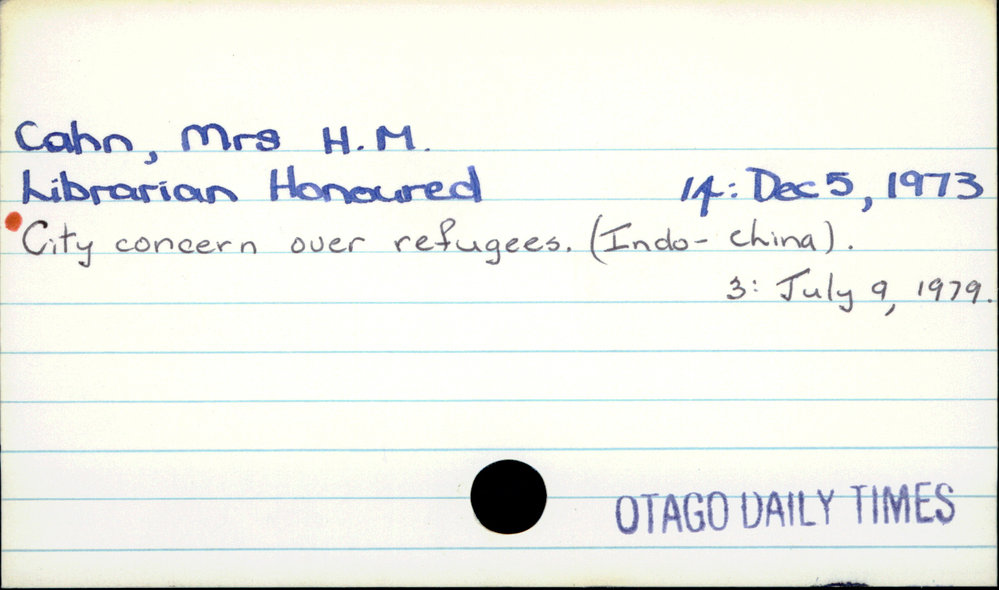 Cahn, Mrs H.M.
Librarian Honoured 14: Dec 5, 1973
City concern over refugees. (Indo-China).
3: July 9, 1979.
OTAGO DAILY TIMES